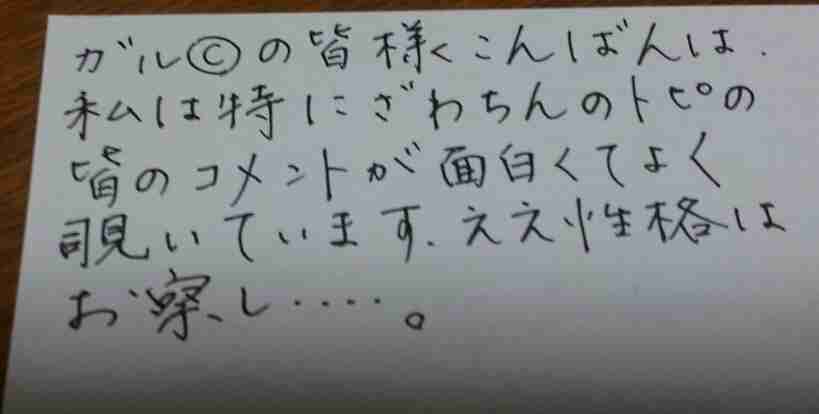 ガルⒸの皆様くこんばんは.
私は特にざわちんのトピの
皆のコメントが面白くてよく
覗いています.ええ性格は
お察し・・・・。